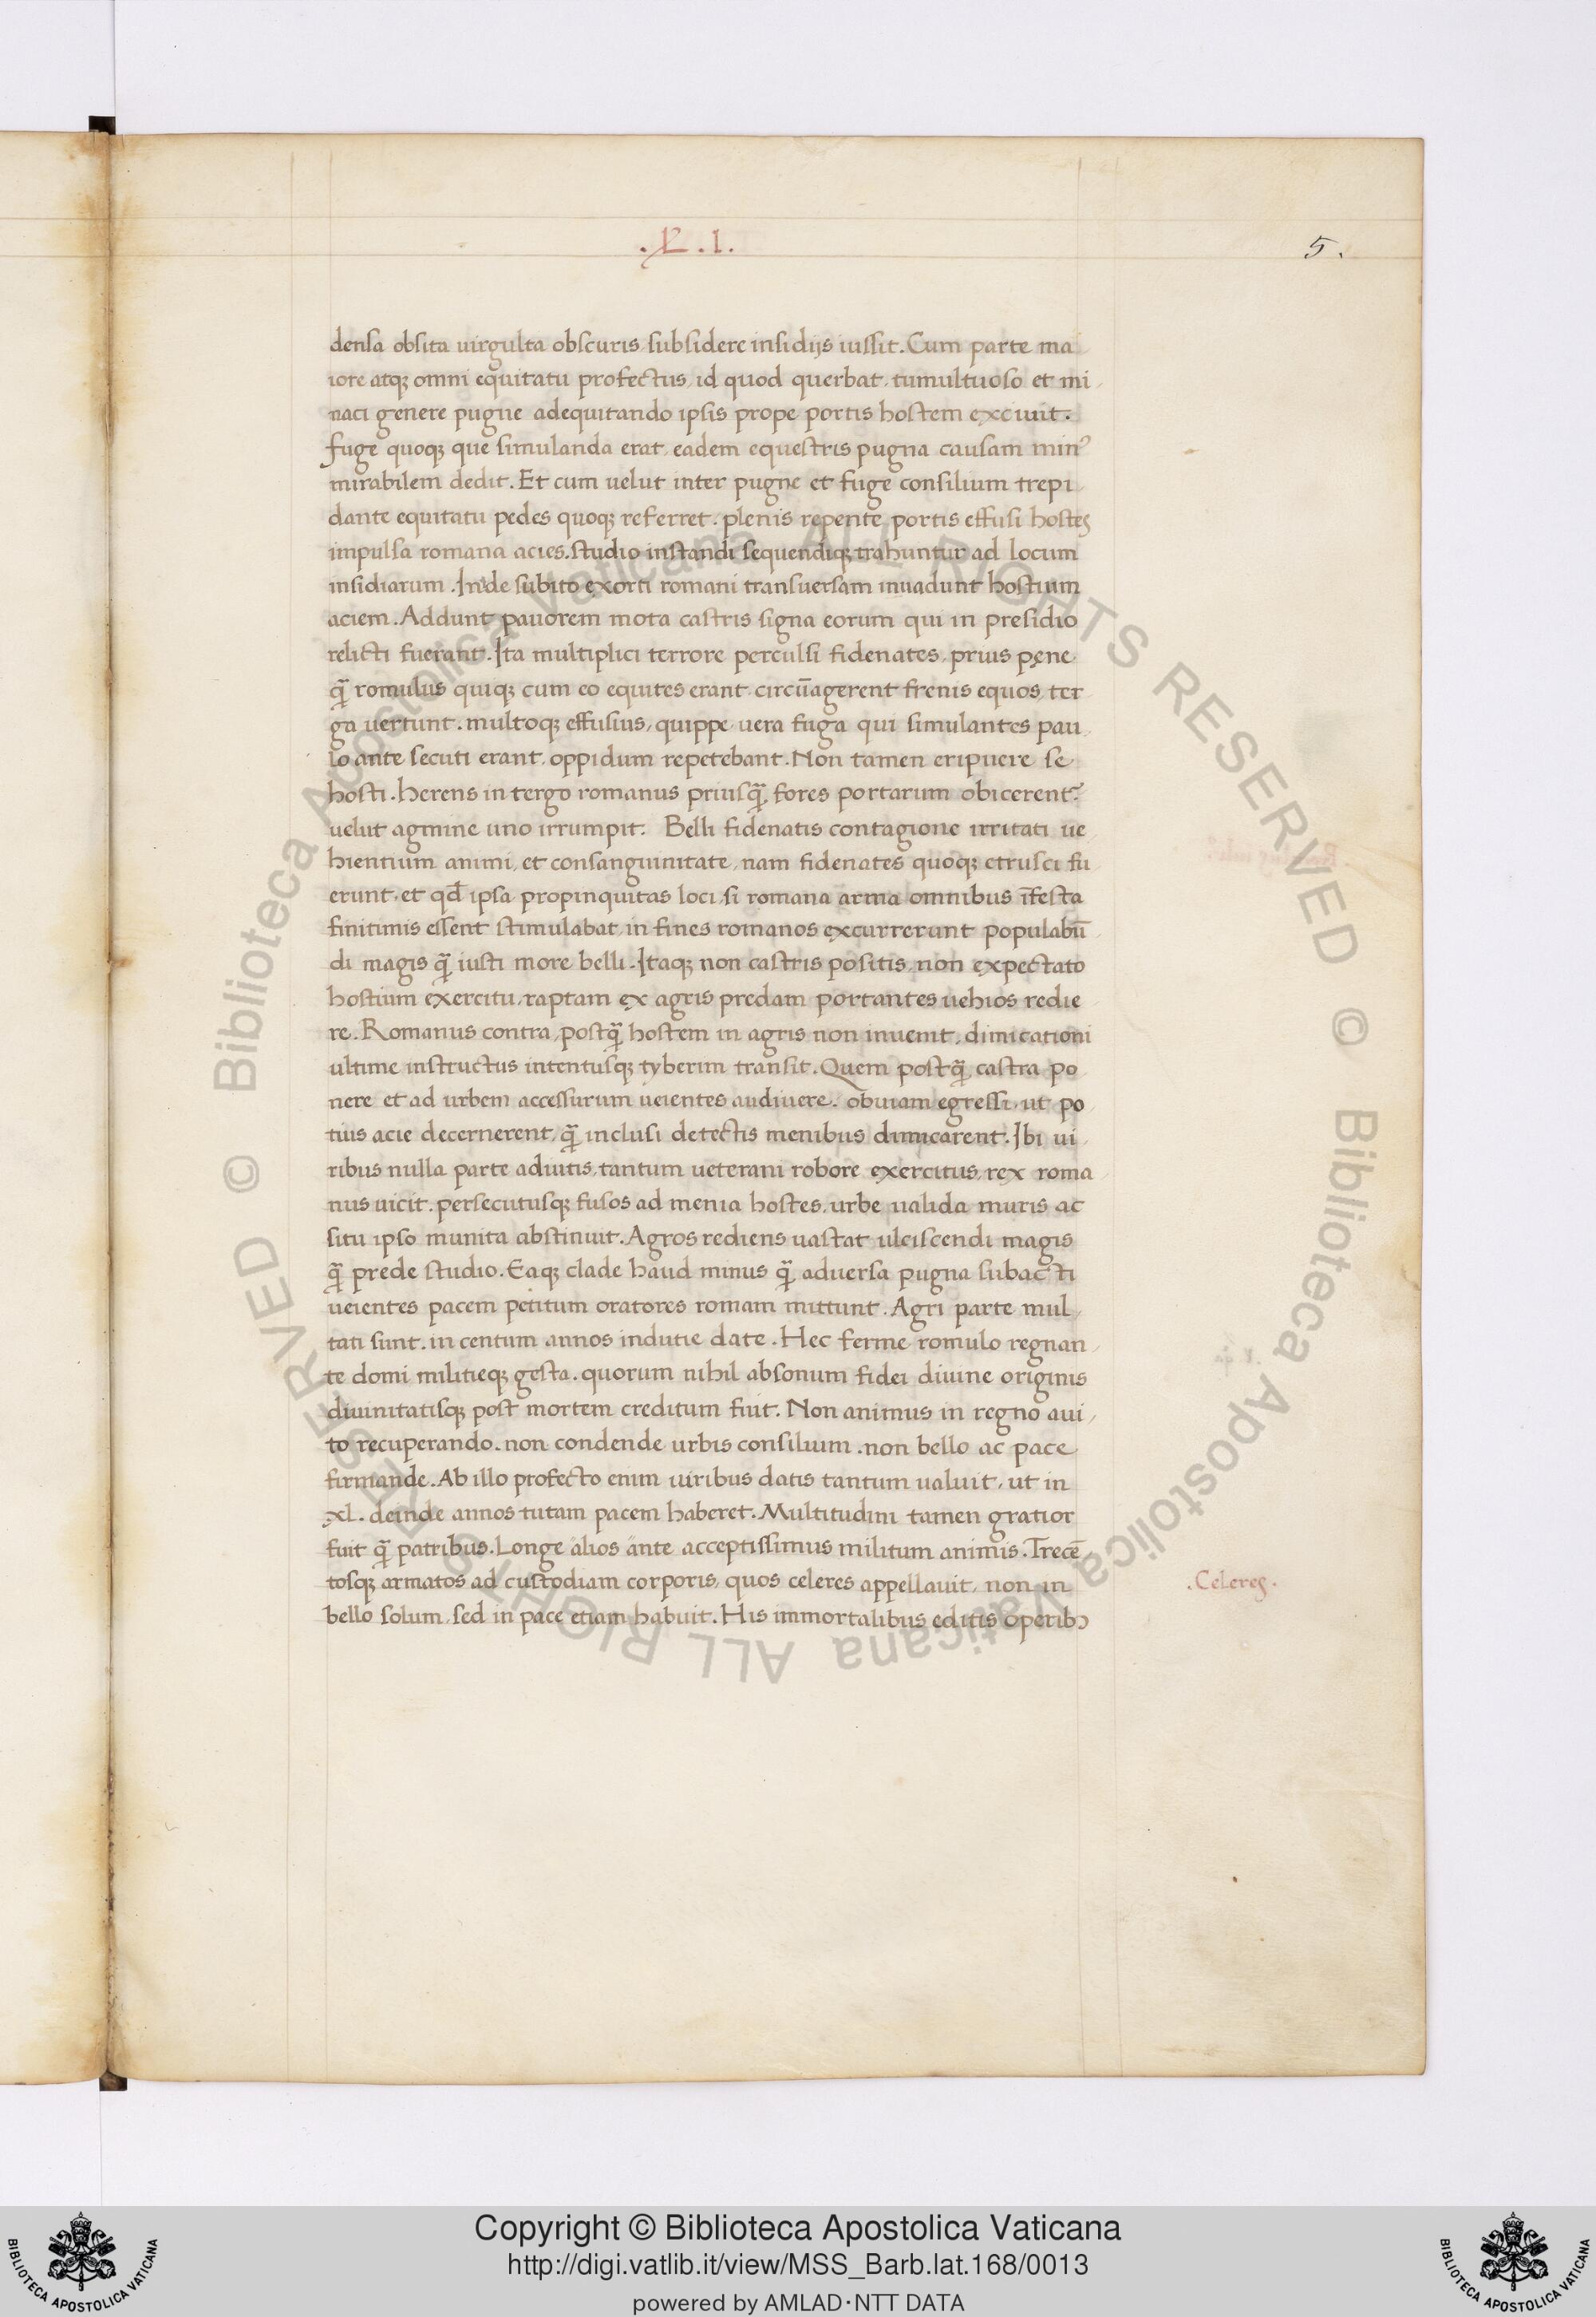 .L.I.
5.
densa obsita uirgulta obscuris subsidere insidijs iussit. Cum parte ma
iore atqꝫ omni equitatu profectus, id quod querbat, tumultuoso et mi
naci genere pugne adequitando ipsis prope portis hostem exciuit.
fuge quoqꝫ que simulanda erat, eadem equestris pugna causam minꝰ
mirabilem dedit. Et cum uelut inter pugne et fuge consilium trepi
dante equitatu pedes quoqꝫ referret. plenis repente portis effusi hostes
impulsa romana acies. studio instandi sequendiqꝫ trahuntur ad locum
insidiarum. Inde subito exorti romani transuersam inuadunt hostium
aciem. Addunt pauorem mota castris signa eorum qui in presidio
relicti fuerant. Ita multiplici terrore perculsi fidenates, prius pęne
qᷓ romulus quiqꝫ cum eo equites erant circūagerent frenis equos, ter
ga uertunt. multoqꝫ effusius, quippe uera fuga qui simulantes pau
lo ante secuti erant, oppidum repetebant. Non tamen eripuere se
hosti. herens in tergo romanus priusqᷓ, fores portarum obicerentᷣ
uelut agmine uno irrumpit. Belli fidenatis contagione irritati ue
hientium animi, et consanguinitate, nam fidenates quoqꝫ etrusci fu
erunt, et qđ ipsa propinquitas loci, si romana arma omnibus īfesta
finitimis essent stimulabat, in fines romanos excurrerunt populabū
di magis qᷓ iusti more belli. Itaqꝫ non castris positis, non expectato
hostium exercitu, raptam ex agris predam portantes uehios redie
re. Romanus contra, postqᷓ hostem in agris non inuenit, dimicationi
ultime instructus intentusqꝫ tyberim transit. Quem postqᷓ castra po
nere et ad urbem accessurum ueientes audiuere. obuiam egressi, ut po
tius acie decernerent, qᷓ inclusi detectis menibus dimicarent. Ibi ui
ribus nulla parte adiutis, tantum ueterani robore exercitus, rex roma
nus uicit. persecutusqꝫ fusos ad menia hostes, urbe ualida muris ac
situ ipso munita abstinuit. Agros rediens uastat ulciscendi magis
qᷓ prede studio. Eaqꝫ clade haud minus qᷓ aduersa pugna subacti
ueientes pacem petitum oratores romam mittunt. Agri parte mul
tati sunt. in centum annos indutie date. Hec ferme romulo regnan
te domi militieqꝫ gesta. quorum nihil absonum fidei diuine originis
diuinitatisqꝫ post mortem creditum fuit. Non animus in regno aui
to recuperando. non condende urbis consilium. non bello ac pace
firmande. Ab illo profecto enim uiribus datis tantum ualuit, ut in
xl. deinde annos tutam pacem haberet. Multitudini tamen gratior
fuit qᷓ patribus. Longe alios ante acceptissimus militum animis. Trecē
tosqꝫ armatos ad custodiam corporis, quos celeres appellauit, non in
bello solum, sed in pace etiam habuit. His immortalibus editis operibꝰ
.Celeres.
© Biblioteca Apostolica Vaticana ALL RIGHTS RESERVED © Biblioteca Apostolica Vaticana ALL RIGHTS RESERVED
BIBLIOTECA APOSTOLICA VATICANA
Copyright © Biblioteca Apostolica Vaticana
http://digi.vatlib.it/view/MSS_Barb.lat.168/0013
powered by AMLAD·NTT DATA
BIBLIOTECA APOSTOLICA VATICANA